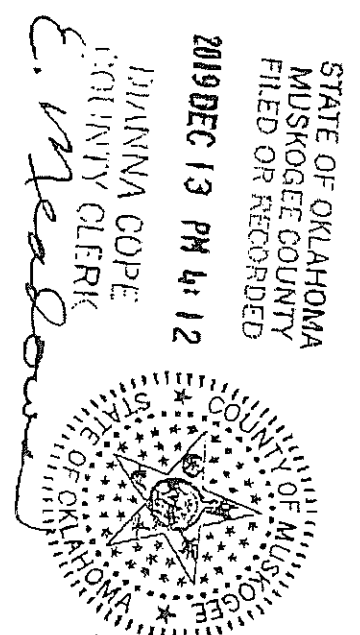 STATE OF OKLAHOMA
MUSKOGEE COUNTY
FILED OR RECORDED
2019 DEC 13 PM 4:12
DIANNA COPE
COUNTY CLERK
E. Meadows
COUNTY OF MUSKOGEE
STATE OF OKLAHOMA